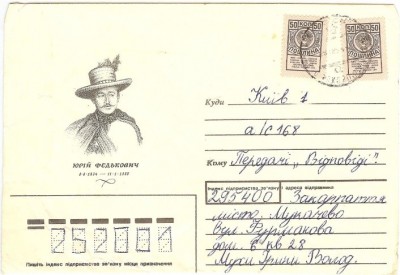 50 СССР 50
ПОШЛИНА
50 СССР 50
ПОШЛИНА
Куди Київ 1
а/с 168
Кому Передачі „Відповіді".
ЮРІЙ ФЕДЬКОВИЧ
8-8-1834 — 11-1-1888
Індекс підприємства зв'язку і адреса відправника
295400 Закарпаття
місто Мукачово
Вул. Фурманова
дом. кв 28
Ірини Волод.
252001
Пишіть індекс підприємства зв'язку місця призначення